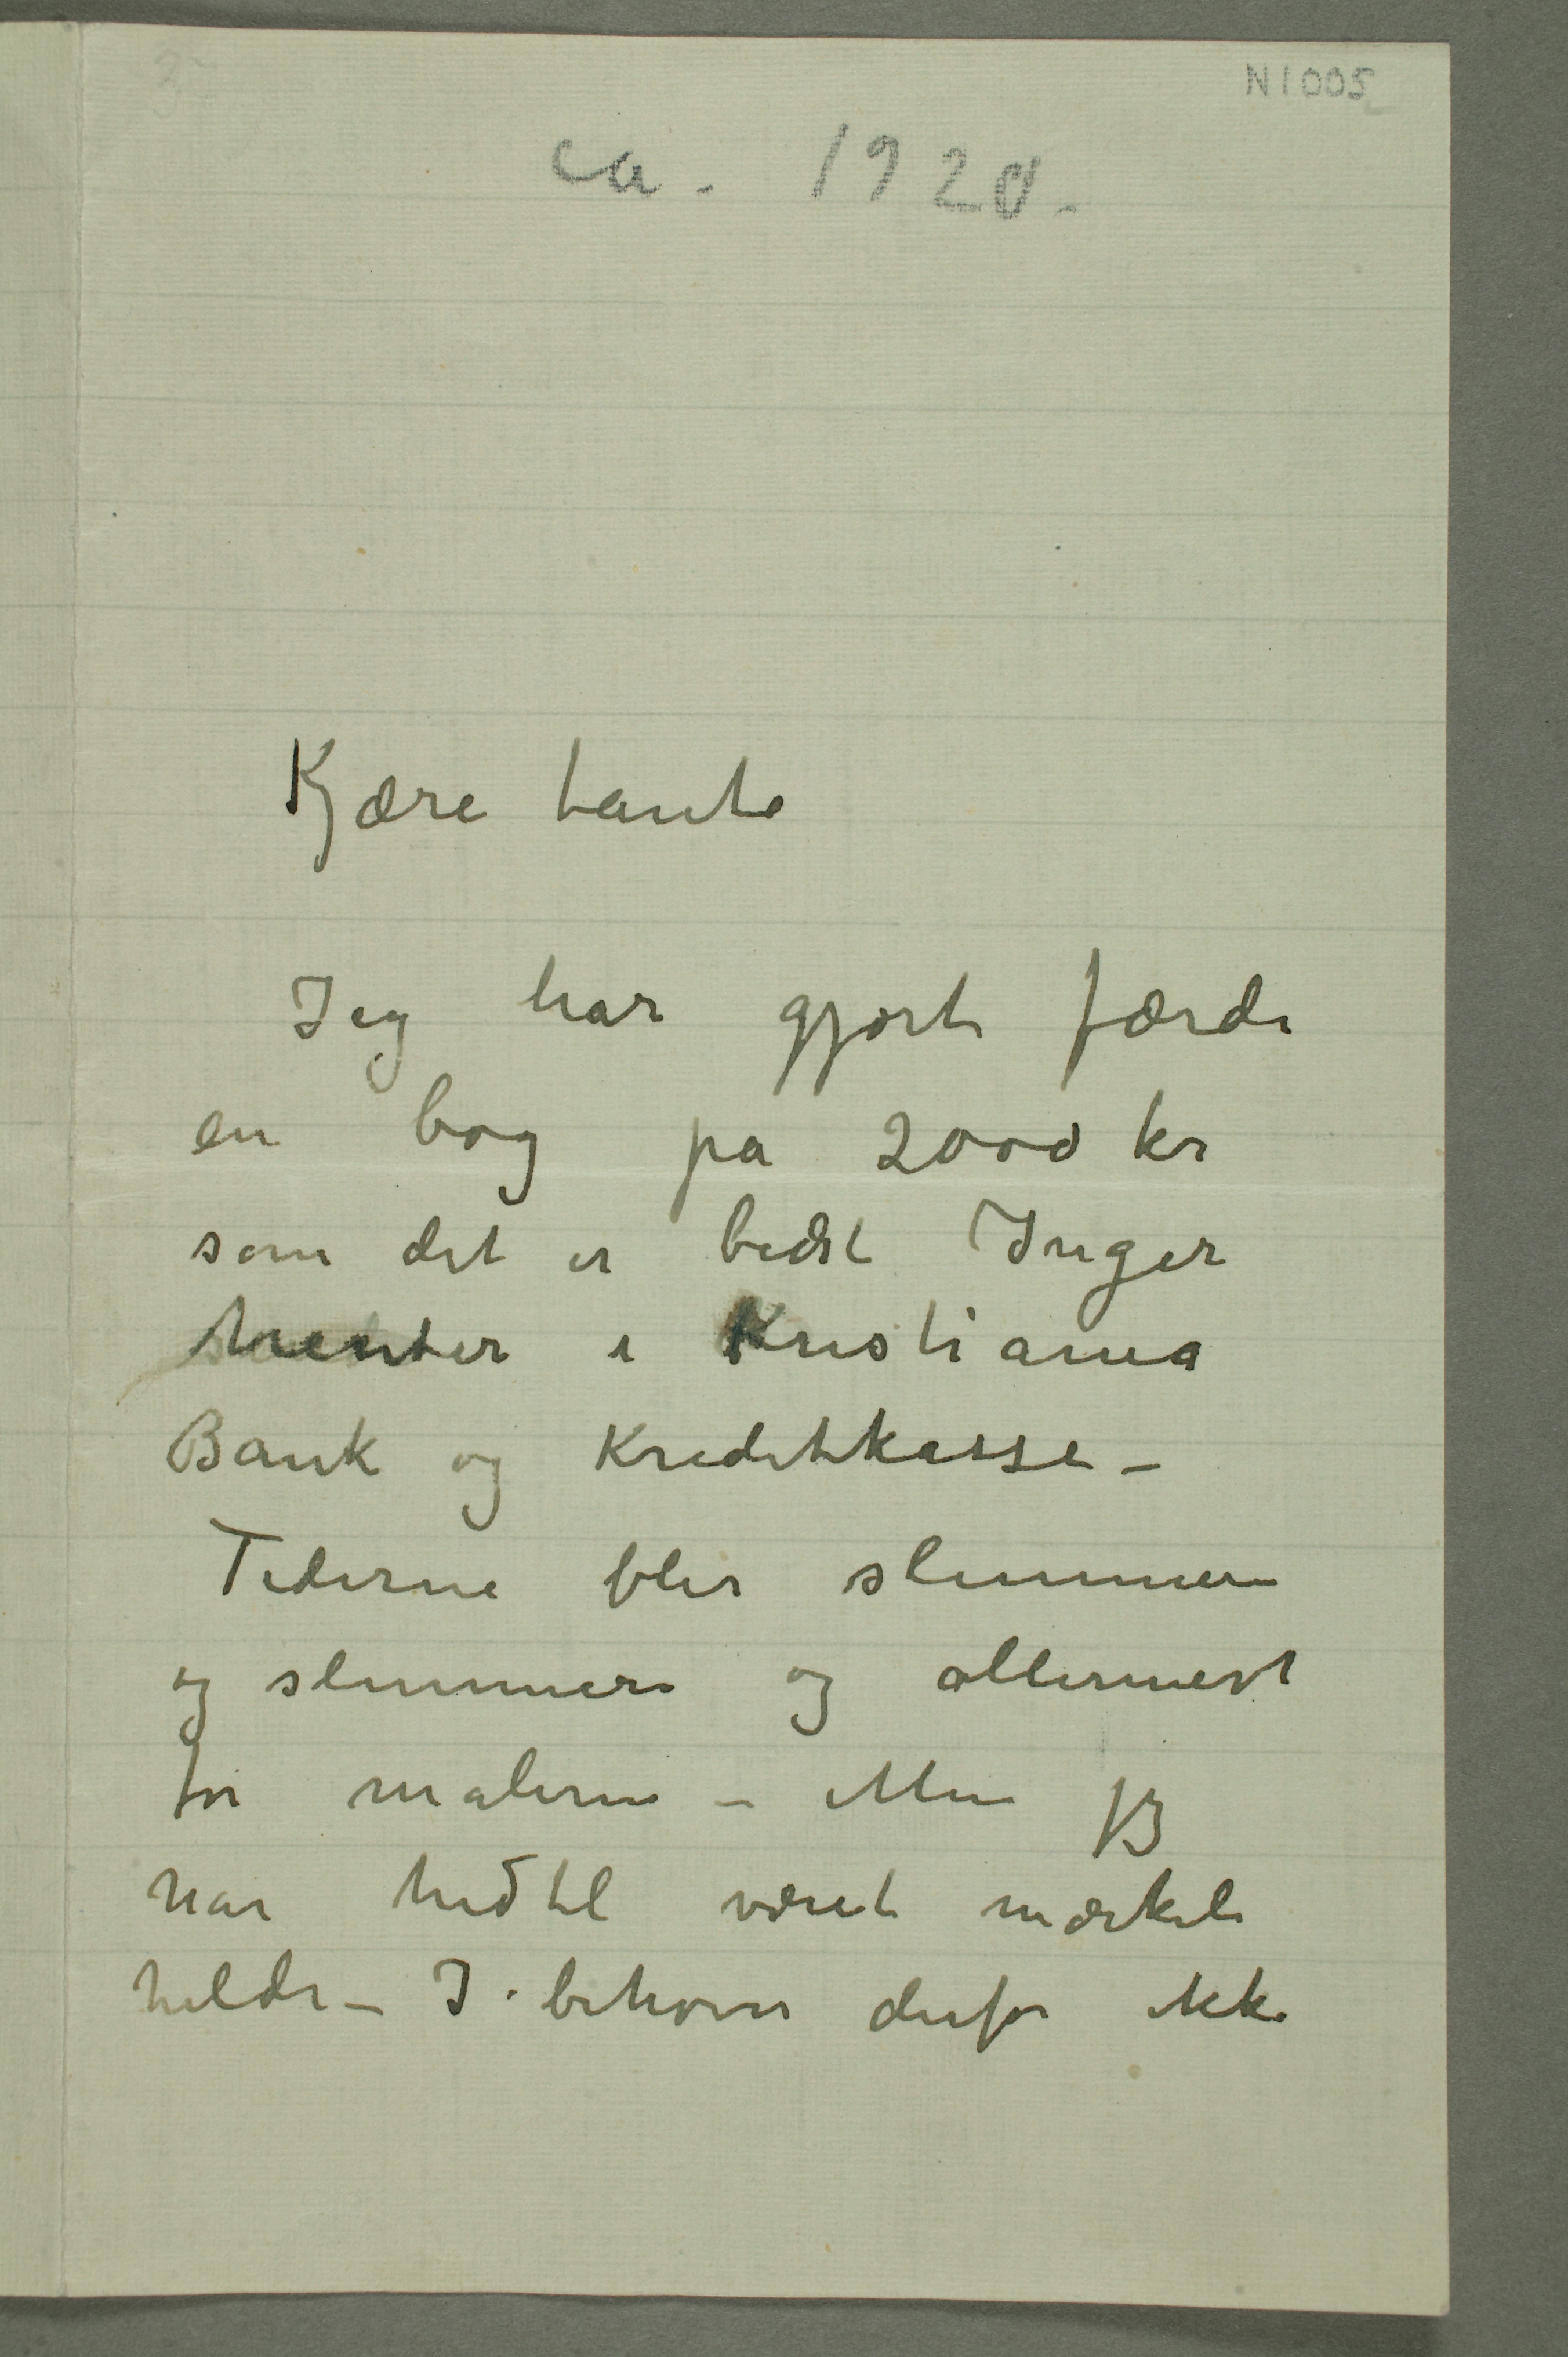 N 1005
ca. 1920.
Kjære tante
Jeg har gjort færdi
en bog på 2000 kr
som det er bedst Inger
henter i Kristiania
Bank og Kreditkasse –
Tiderne blir slemmere
og slemmere og allermest
for malerne – Men jeg
har hidtil været mærkeli
heldi – I behøver derfor ikke